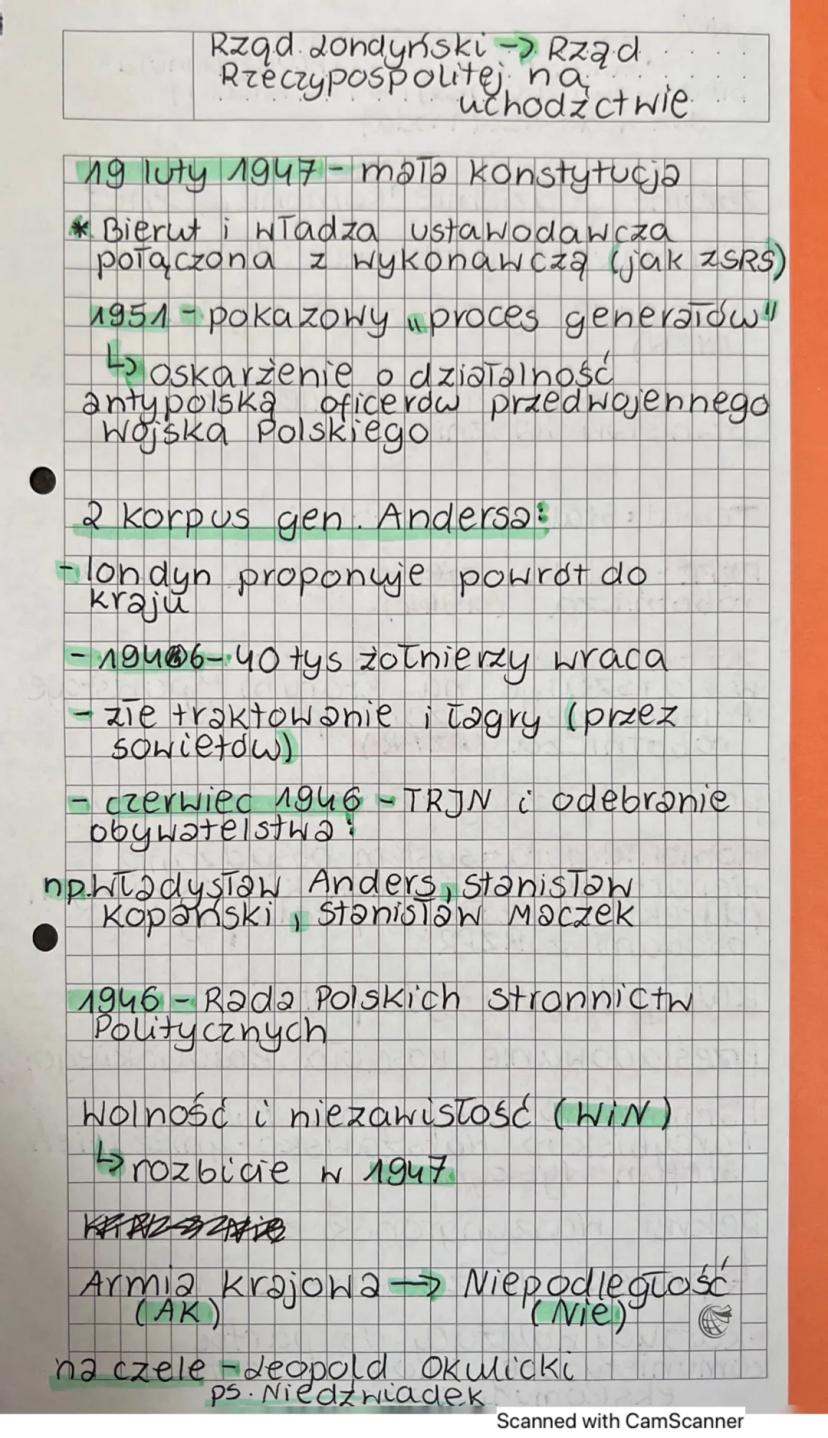 Rząd londyński → Rząd
Rzeczypospolitej na
uchodźctwie
19 luty 1947 - mała konstytucja
* Bierut i władza ustawodawcza
połączona z wykonawczą (jak ZSRS)
1951 - pokazowy „proces generałów"
↳ oskarżenie o działalność
antypolską oficerów przedwojennego
Wojska Polskiego
2 korpus gen. Andersa:
- londyn proponuje powrót do
kraju
- 1946 - 40 tys żołnierzy wraca
- złe traktowanie i łagry (przez
sowietów)
- czerwiec 1946 - TRJN i odebranie
obywatelstwa:
np. Władysław Anders, Stanisław
Kopański, Stanisław Maczek
1946 - Rada Polskich Stronnictw
Politycznych
Wolność i niezawisłość (WiN)
↳ rozbicie w 1947
Armia Krajowa → Niepodległość
(AK) (Nie)
na czele - Leopold Okulicki
ps. Niedźwiadek
Scanned with CamScanner